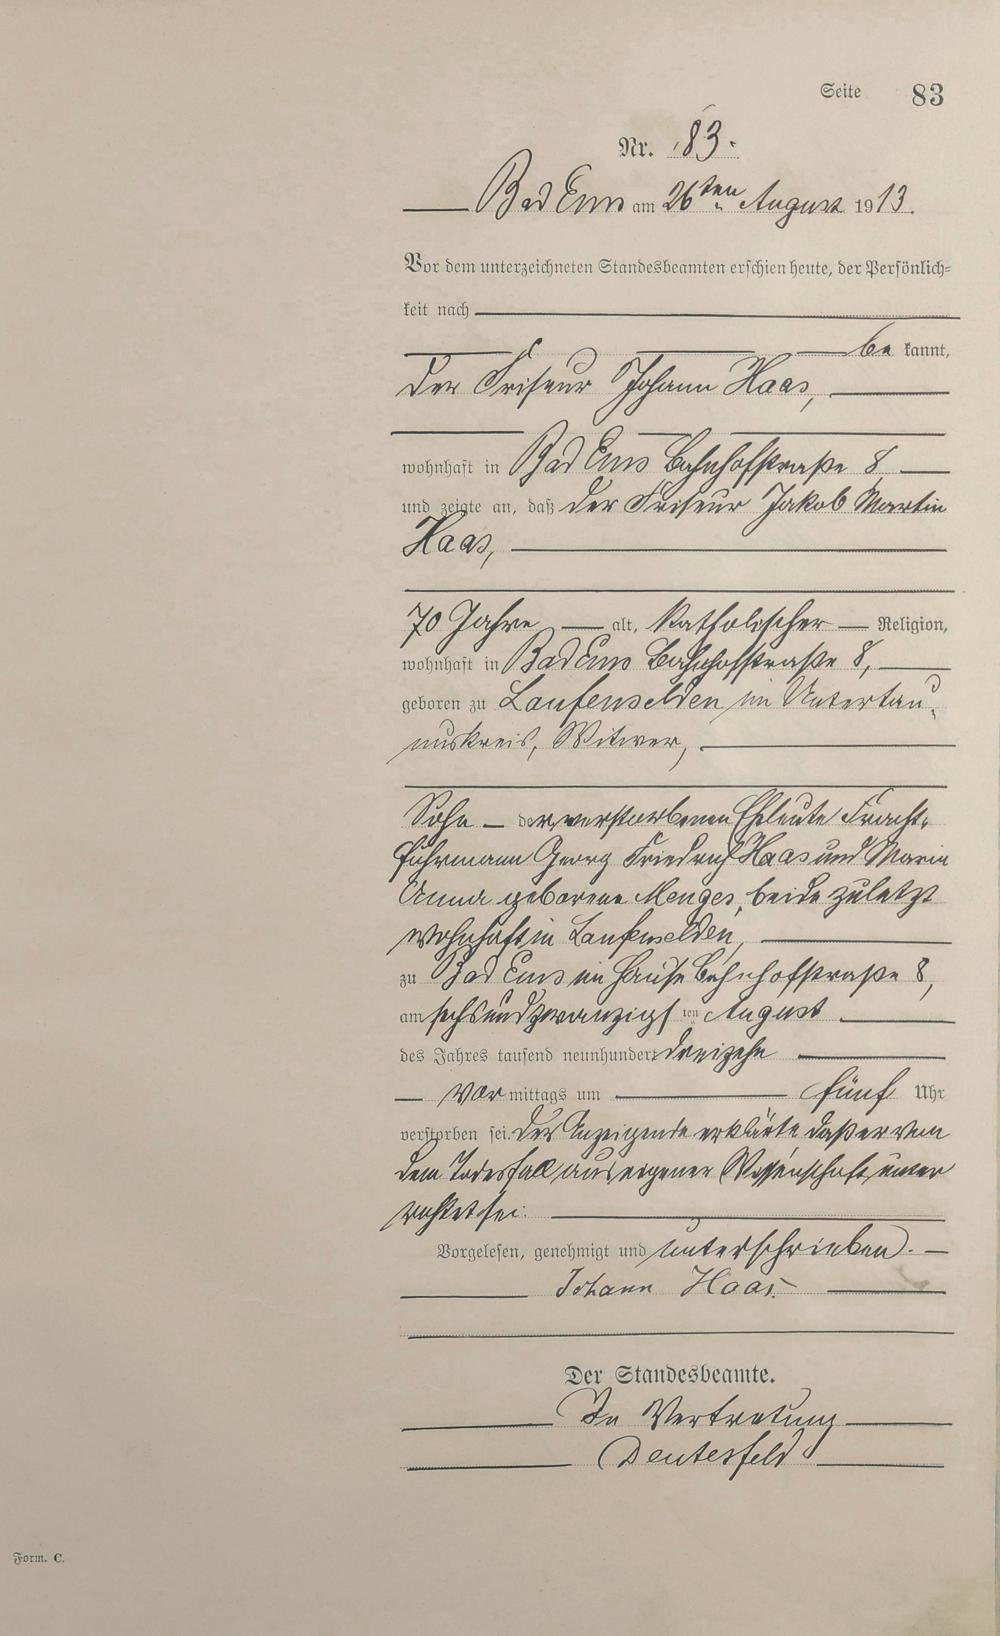 Seite 83
Nr. 83.
Bad Ems am 26ten August 1913.
Vor dem unterzeichneten Standesbeamten erschien heute, der Persönlich-
keit nach
be kannt,
der Friseur Johann Haas,
wohnhaft in Bad Ems Bahnhofstraße 8
und zeigte an, daß der Friseur Jakob Martin
Haas,
70 Jahre alt, katholischer Religion,
wohnhaft in Bad Ems Bahnhofstraße 8,
geboren zu Laufenselden im Untertau-
nuskreis, Witwer,
Sohn der verstorbenen Eheleute Fracht-
fuhrmann Georg Friedrich Haas und Maria
Anna geborene Menges, beide zuletzt
wohnhaft in Laufenselden,
zu Bad Ems im Hause Bahnhofstraße 8,
am sechsundzwanzigsten August
des Jahres tausend neunhundert dreizehn
vor mittags um fünf Uhr
verstorben sei. Der Anzeigende erklärte daß er von
dem Todesfall aus eigener Wissenschaft unter
richtet sei.
Vorgelesen, genehmigt und unterschrieben.
Johann Haas.
Der Standesbeamte.
In Vertretung
Deutesfeld
Form. C.